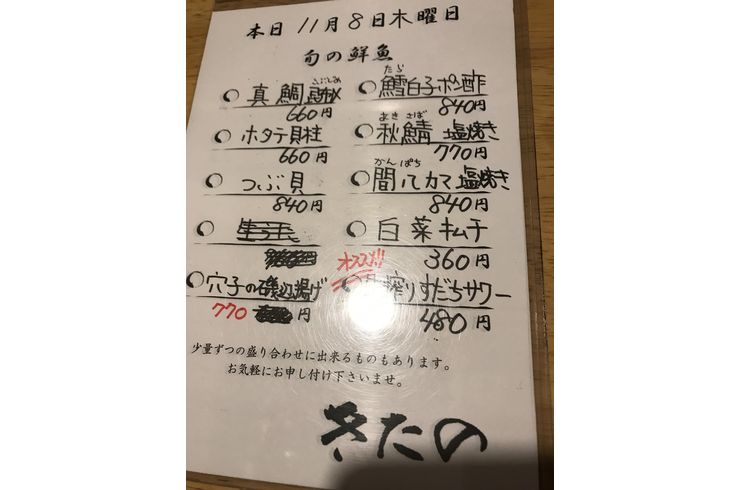 本日 11月8日木曜日
旬の鮮魚
こぶじめ
真鯛昆布〆
660円
ホタテ貝柱
660円
つぶ貝
840円
穴子の磯辺揚げ
770 円
たら
鱈白子ポン酢
840円
あき さば
秋鯖 塩焼き
770円
かんぱち
間八カマ塩焼き
840円
白菜キムチ
360円
オススメ!!
搾りすだちサワー
480円
少量ずつの盛り合わせに出来るものもあります。
お気軽にお申し付け下さいませ。
きたの